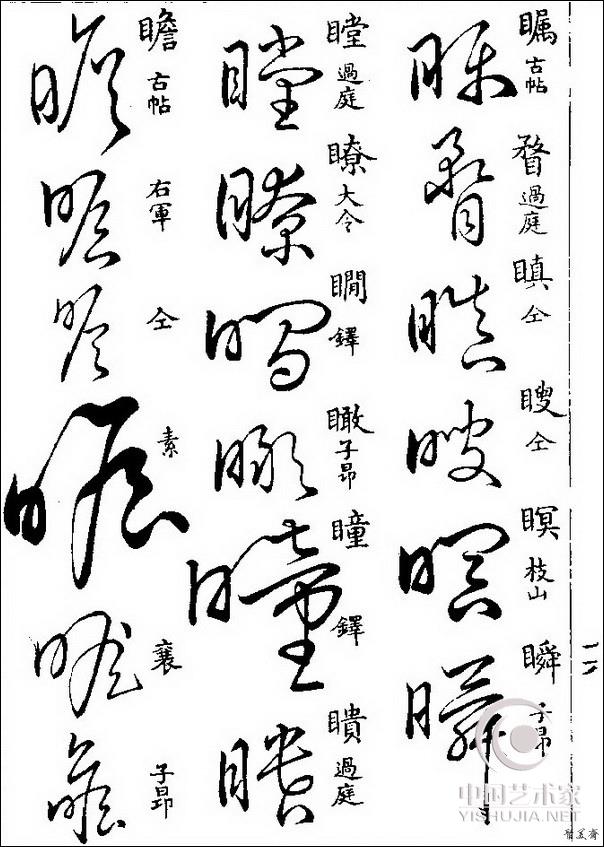 瞩 古帖
瞀 過庭
瞋 仝
瞍 仝
瞑 枝山
瞬 子昂
瞠 過庭
瞭 大令
瞷 鐸
瞰 子昂
瞳 鐸
瞶 過庭
瞻 古帖
右軍
仝
素
襄
子昂
中国艺术家
YISHUJIA.NET